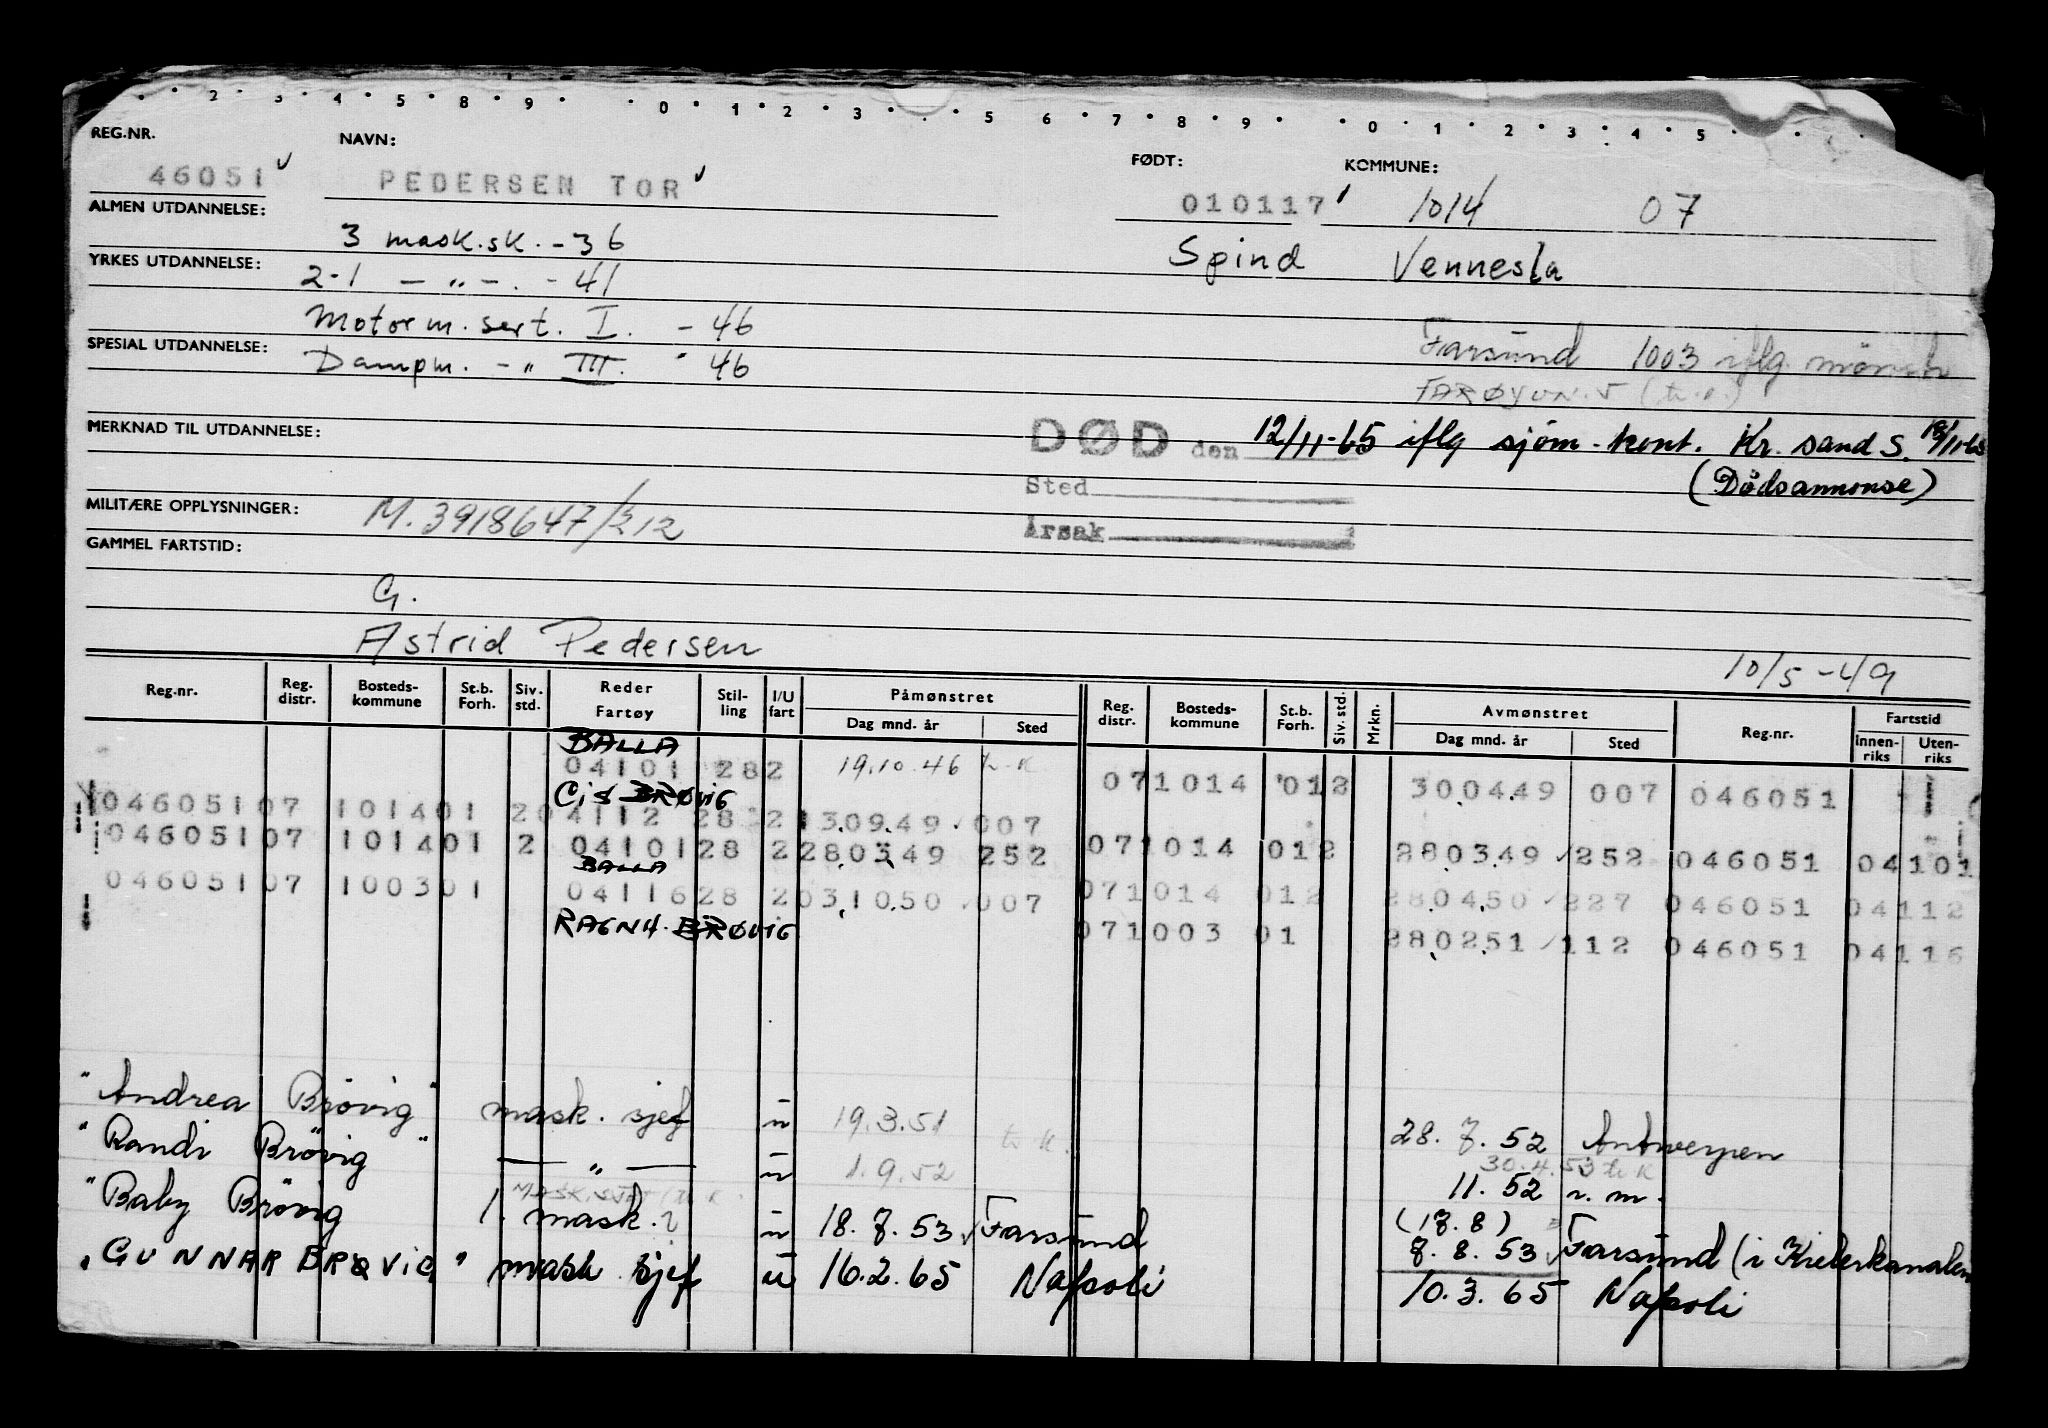 2 3 4 5 8 9 0 1 2 3 5 6 7 8 9 0 1 2 3 4 5
REG.NR. NAVN: FØDT: KOMMUNE:
46051 PEDERSEN TOR 010117 1014 07
ALMEN UTDANNELSE: 3 mask.sk. - 36 Spind Vennesla
YRKES UTDANNELSE: 2-1 — „ — . - 41
Motorm. sert. I. - 46
Farsund 1003 iflg. mönstr
SPESIAL UTDANNELSE: Dampm. - „ III. " 46
FARØYVN. 5
MERKNAD TIL UTDANNELSE: DØD den 12/11-65 iflg sjøm-kont. Kr. sand S. 18/11-65
Sted (Dødsannonse)
MILITÆRE OPPLYSNINGER: M. 3918647/212
Årsak
GAMMEL FARTSTID:
G.
Astrid Pedersen
10/5-49
Reg.nr. Reg. distr. Bosteds-kommune St.b. Forh. Siv. std. Reder Fartøy Stil-ling I/U fart Påmønstret Dag mnd. år Sted Reg. distr. Bosteds-kommune St.b. Forh. Siv. std. Mrkn. Avmønstret Dag mnd. år Sted Reg.nr. Fartstid Innen-riks Uten-riks
BALLA
04101 282 19.10.46 t.k 071014 012 300449 007 046051
CIS BRØVIG
046051 07 1014 01 2 04112 28 2 130949 007
046051 07 1014 01 2 04101 28 2 280349 252 071014 012 280349 252 046051 04101
BALLA
046051 07 1003 01 04116 28 2 031050 007 071014 012 280450 227 046051 04112
RAGNH. BRØVIG 071003 01 280251 112 046051 04116
"Andrea Brøvig" mask. sjef u 19.3.51 28.7.52 Antwerpen
t.k.
"Randi Brøvig" — „ — u 1.9.52 30.4.53 t.k
11.52 r.m.
MASK.SJEF (t.k.
"Baby Brøvig 1. mask. u 18.7.53 Farsund (17.8)
8.8.53 Farsund (i Kielerkanalen
"GUNNAR BRØVIG" mask sjef u 16.2.65 Napoli 10.3.65 Napoli